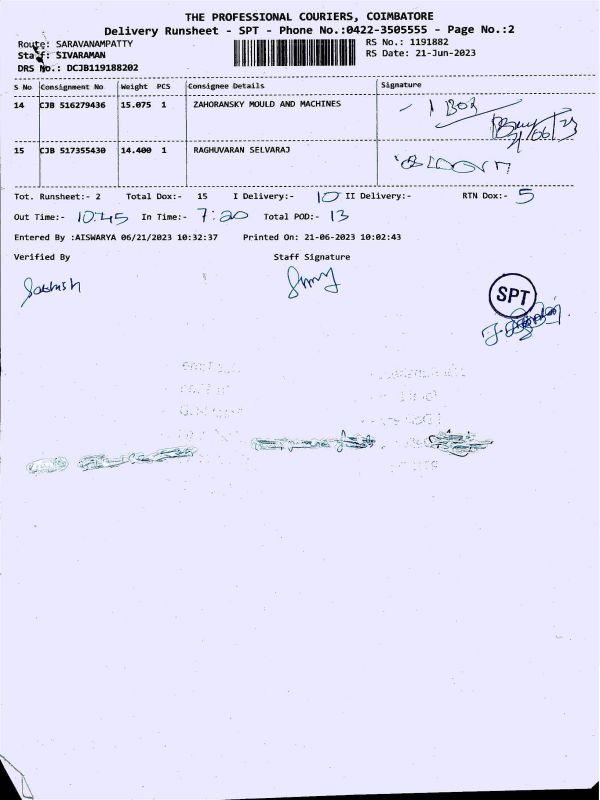 THE PROFESSIONAL COURIERS, COIMBATORE
Delivery Runsheet - SPT - Phone No.:0422-3505555 - Page No.:2
Route: SARAVANAMPATTY RS No.: 1191882
Staff: SIVARAMAN RS Date: 21-Jun-2023
DRS No.: DCJB119188202
S No Consignment No Weight PCS Consignee Details Signature
14 CJB 516279436 15.075 1 ZAHORANSKY MOULD AND MACHINES - 1 Box
21/06/23
15 CJB 517355430 14.400 1 RAGHUVARAN SELVARAJ
Tot. Runsheet:- 2 Total Dox:- 15 I Delivery:- 10 II Delivery:- RTN Dox:- 5
Out Time:- 10:45 In Time:- 7:20 Total POD:- 13
Entered By :AISWARYA 06/21/2023 10:32:37 Printed On: 21-06-2023 10:02:43
Verified By Staff Signature
SPT